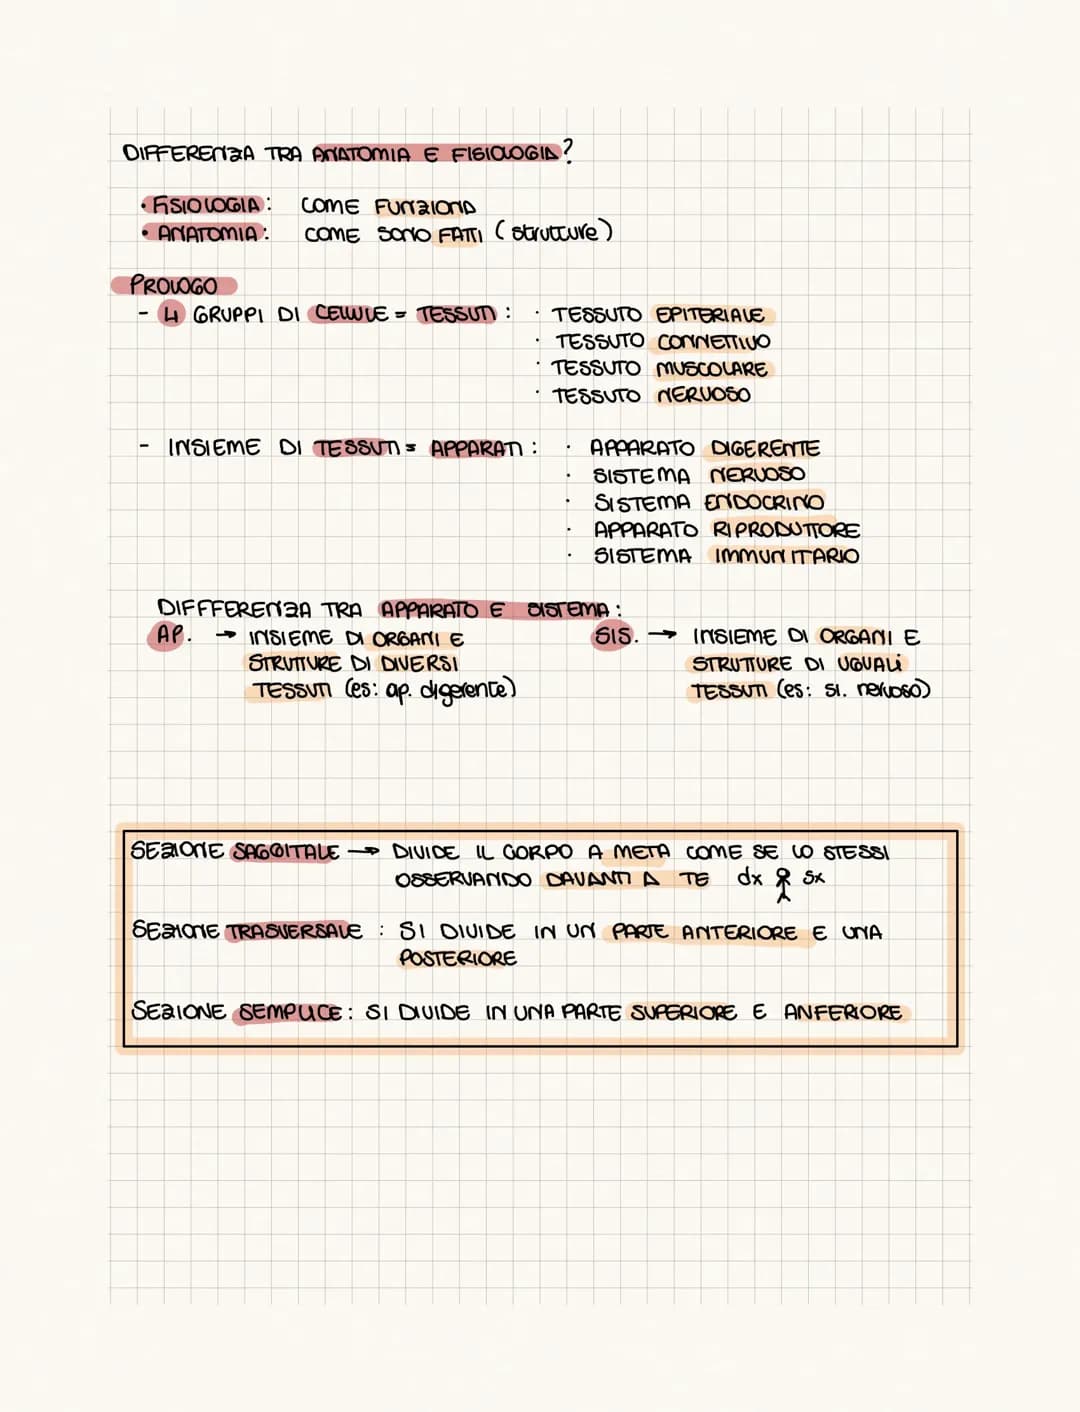 DIFFERENZA TRA ANATOMIA E FISIOLOGIA?
• FISIOLOGIA: COME FUNZIONA
• ANATOMIA: COME SONO FATTI (strutture)
PROLOGO
- 4 GRUPPI DI CELLULE = TESSUTI : · TESSUTO EPITERIALE
· TESSUTO CONNETTIVO
· TESSUTO MUSCOLARE
· TESSUTO NERVOSO
- INSIEME DI TESSUTI = APPARATI : · APPARATO DIGERENTE
· SISTEMA NERVOSO
· SISTEMA ENDOCRINO
· APPARATO RIPRODUTTORE
· SISTEMA IMMUNITARIO
DIFFFERENZA TRA APPARATO E SISTEMA :
AP. → INSIEME DI ORGANI E
STRUTTURE DI DIVERSI
TESSUTI (es: ap. digerente)
SIS. → INSIEME DI ORGANI E
STRUTTURE DI UGUALI
TESSUTI (es: si. nervoso)
SEZIONE SAGGITALE → DIVIDE IL CORPO A META COME SE LO STESSI
OSSERVANDO DAVANTI A TE dx sx
SEZIONE TRASVERSALE : SI DIVIDE IN UN PARTE ANTERIORE E UNA
POSTERIORE
SEZIONE SEMPLICE : SI DIVIDE IN UNA PARTE SUPERIORE E ANFERIORE